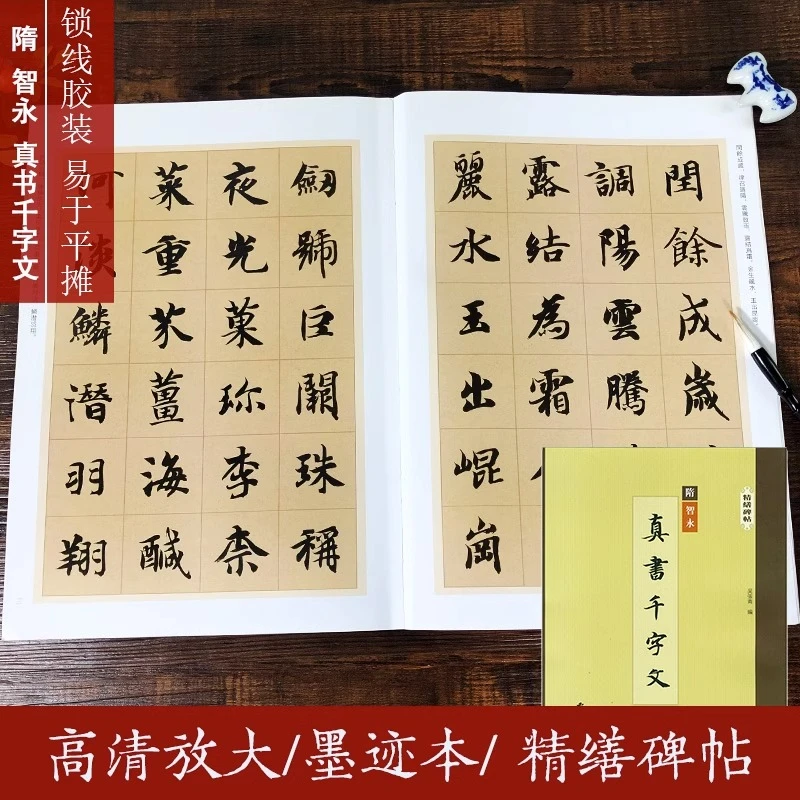 隋 智永 真书千字文
锁线胶装 易于平摊
閏餘成歲
調陽雲騰
露結為霜
麗水玉出崐崗
劒號巨闕珠稱
夜光菓珎李柰
菜重芥薑海醎
河淡鱗潛羽翔
精缮碑帖
隋
智永
真書千字文
高清放大/墨迹本/ 精缮碑帖